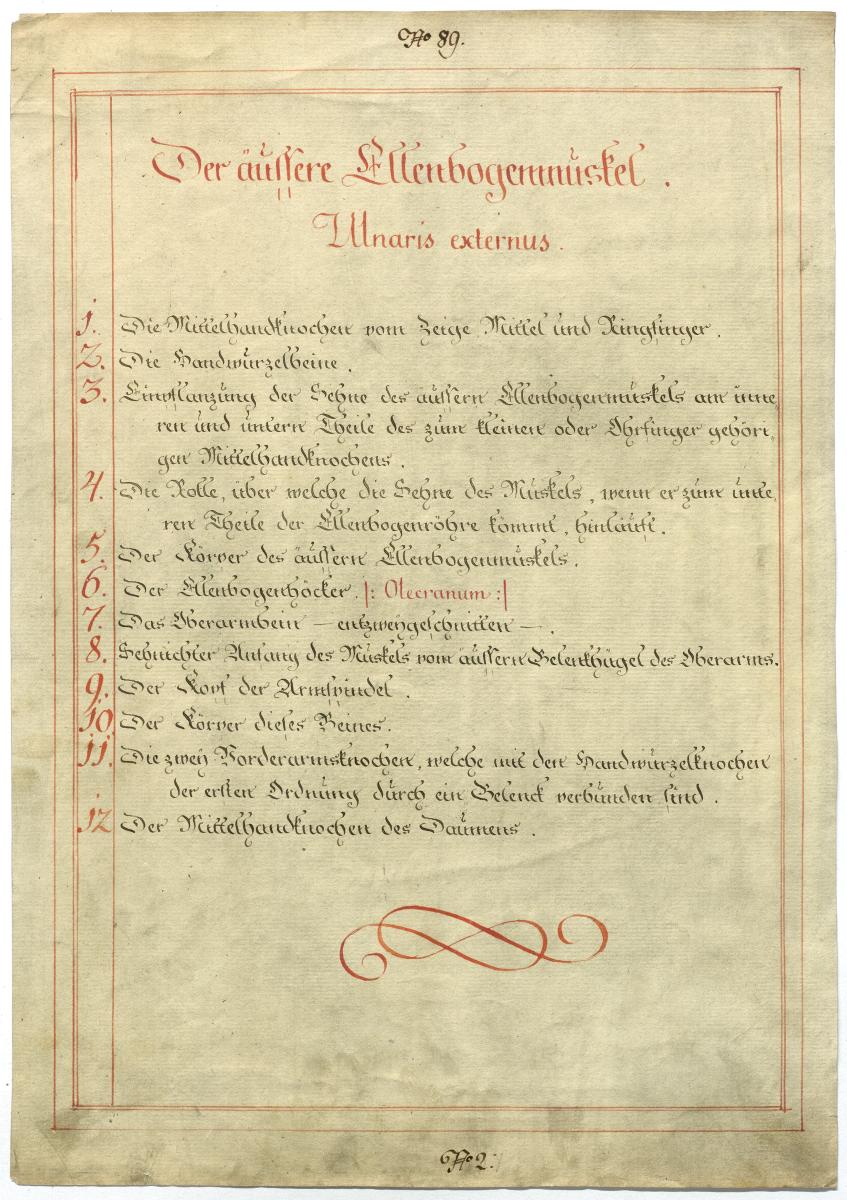 No 89.
Der äussere Ellenbogenmuskel.
Ulnaris externus.
1. Die Mittelhandknochen vom Zeige Mittel und Ringfinger.
2. Die Handwurzelbeine.
3. Einpflanzung der Sehne des äussern Ellenbogenmuskels am inne,
ren und untern Theile des zum kleinen oder Ohrfinger gehöri,
gen Mittelhandknochens.
4. Die Rolle, über welche die Sehne des Muskels, wenn er zum unte,
ren Theile der Ellenbogenröhre kömmt, hinläuft.
5. Der Körper des äussern Ellenbogenmuskels.
6. Der Ellenbogenhöcker. |: Olecranum :|
7. Das Oberarmbein — entzweygeschnitten —.
8. Sehnichter Anfang des Muskels vom äussern Gelenkhügel des Oberarms.
9. Der Kopf der Armspindel.
10. Der Körper dieses Beines.
11. Die zwey Vorderarmsknochen, welche mit den Handwurzelknochen
der ersten Ordnung durch ein Gelenck verbunden sind.
12 Der Mittelhandknochen des Daumens.
No 2.